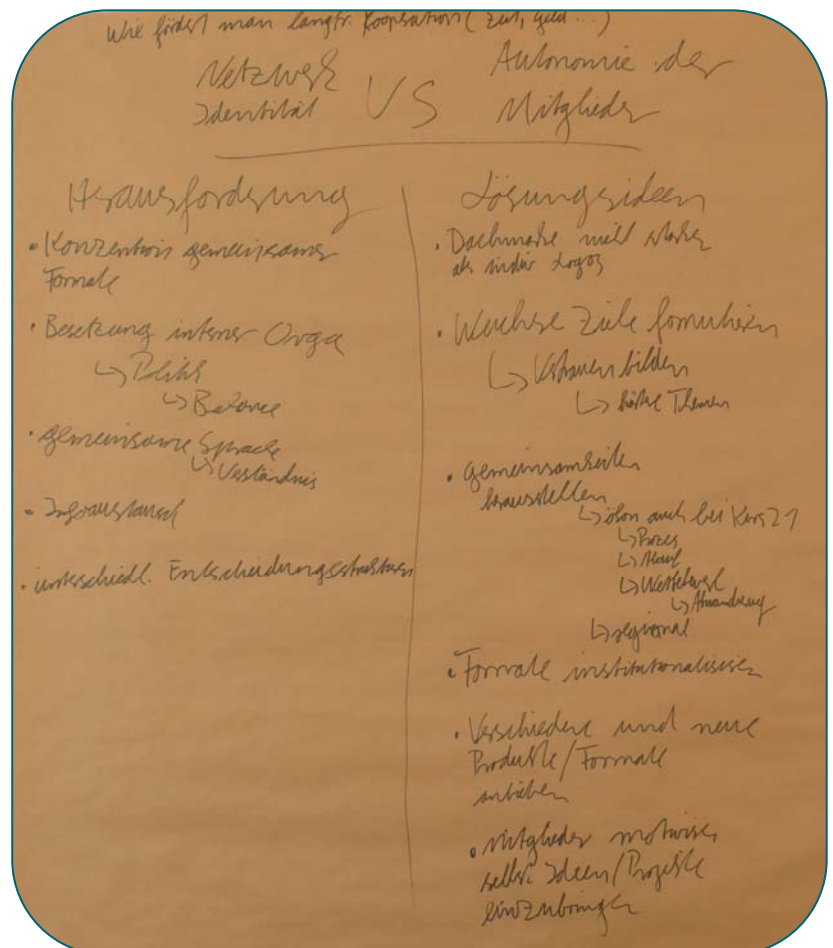 Wie fördert man langfr. Kooperation (Zeit, Geld ...)
Netzwerk
Identität
VS
Autonomie der
Mitglieder
Herausforderung
• Konzention gemeinsamer
Formate
• Besetzung interner Orga
↳ Politik
↳ Balance
• gemeinsame Sprache
↳ Verständnis
• Infoaustausch
• unterschiedl. Entscheidungsstrukturen
Lösungsideen
• Dachmarke nicht stärker
als indiv. Logos
• Weichere Ziele formulieren
↳ Vertrauen bilden
↳ härtere Themen
• Gemeinsamkeiten
herausstellen
↳ auch bei
↳ Prozess
↳
↳ Wettbewerb
↳ Abwanderung
↳ regional
• Formate institutionalisieren
• Verschiedene und neue
Produkte/Formate
anbieten
• Mitglieder motivieren
selbst Ideen/Projekte
einzubringen